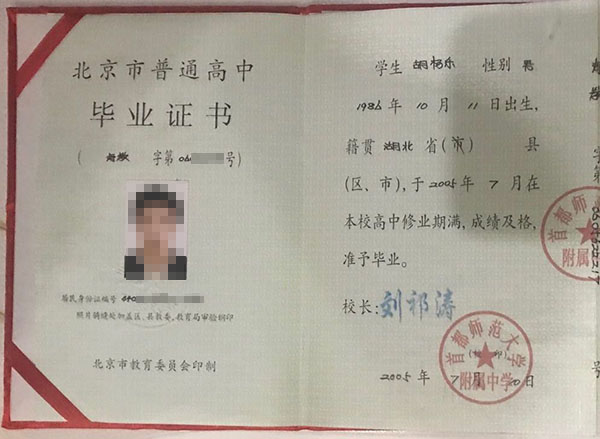 北京市普通高中
毕业证书
字第04 号)
居民身份证编号
照片骑缝处加盖区、县教委、教育局审验钢印
北京市教育委员会印制
学生 胡杨乐 性别 男
1986年10月11日出生,
籍贯 湖北 省(市) 县
(区、市),于2005年7月在
本校高中修业期满,成绩及格,
准予毕业。
校长:刘祁涛
首都师范大学
附属中学
2005年7月10日
首都师范
附属
字第
号